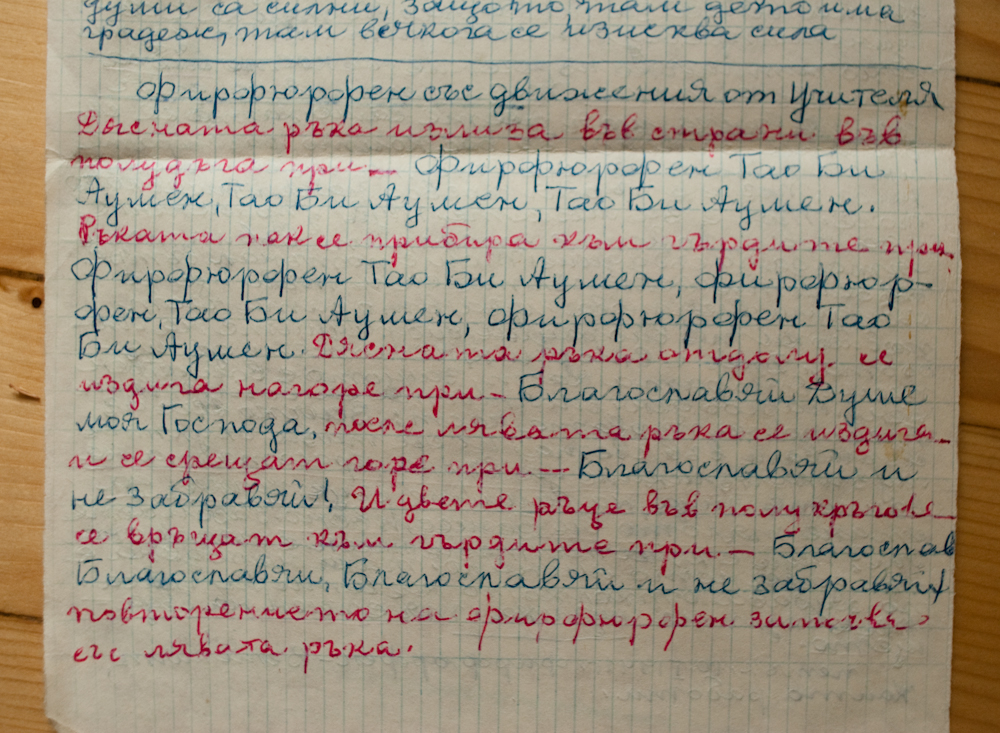 думи са силни, защото там дето има
градеж, там всякога се изисква сила
Фирфюрфен със движения от Учителя
Дясната ръка излиза във страни във
полудъга при — Фирфюрфен Тао Би
Аумен, Тао Би Аумен, Тао Би Аумен.
Ръката пак се прибира към гърдите при
Фирфюрфен Тао Би Аумен, фирфюр-
фен, Тао Би Аумен, фирфюрфен Тао
Би Аумен. Дясната ръка отдолу се
издига нагоре при — Благославяй Душе
моя Господа, после лявата ръка се издига
и се срещат горе при — Благославяй и
не забравяй! И двете ръце във полукръг
се връщат към гърдите при — Благослав
Благославяй, Благославяй и не забравяй!
повторението на фирфюрфен започва
със лявата ръка.